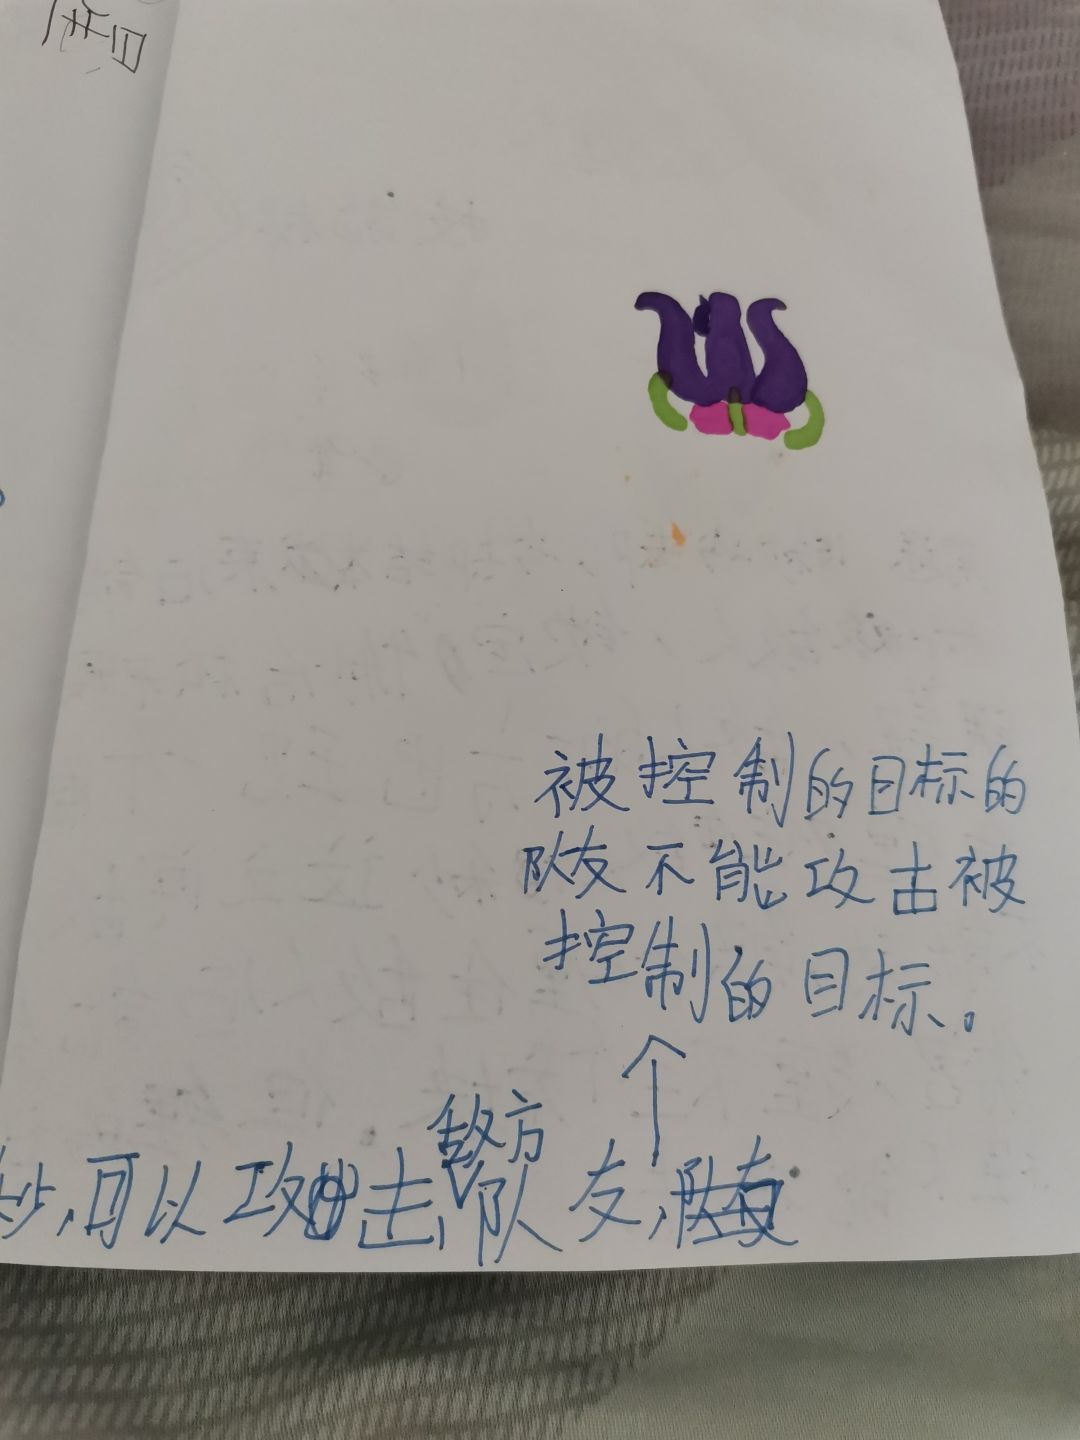 被控制的目标的
队友不能攻击被
控制的目标。
敌方
秒,可以攻击,队友,